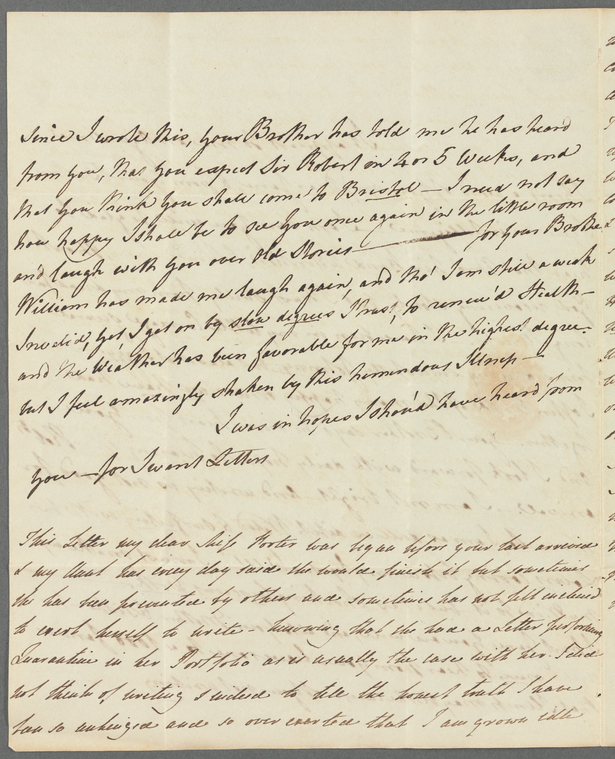 Since I wrote this, your Brother has told me he has heard
from you, that you expect Sir Robert in 4 or 5 Weeks, and
that you think you shall come to Bristol — I need not say
how happy I shall be to see you once again in the little room
and laugh with you over old Stories — for your Brothe
William has made me laugh again, and tho' I am still a weak
Invalid, yet I get on by slow degrees I trust, to renew'd Health —
and the Weather has been favorable for me in the highest degree —
but I feel amazingly shaken by this tremendous Illness —
I was in hopes I shou'd have heard from
you — for I want Letters
This Letter my dear Miss Porter was began before your last arrived
& my Aunt has every day said she would finish it but sometimes
she has been prevented by others and sometimes has not felt inclined
to exert herself to write — knowing that she had a Letter performing
Quarantine in her Portfolio as is usually the case with her I did
not think of writing & indeed to tell the honest truth I have
been so unhinged and so over exerted that I am grown